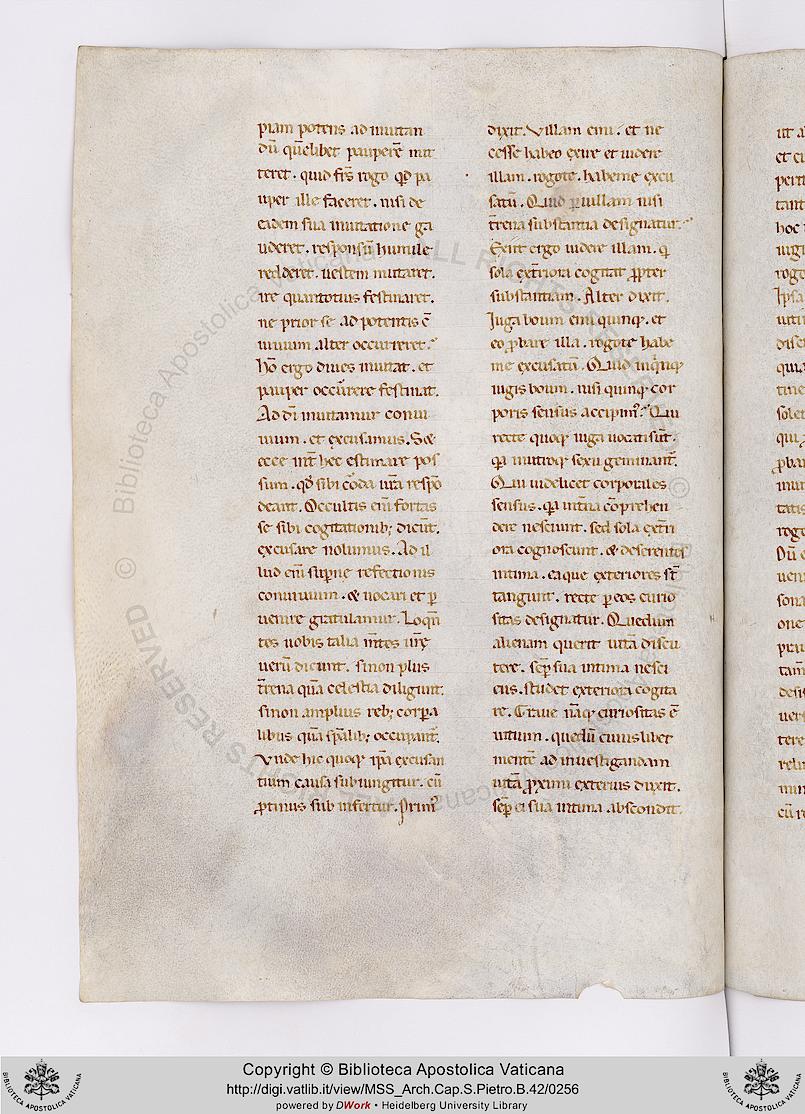 piam potens ad inuitan
dū quēlibet pauperē mit
teret. quid fr̄s rogo qd̄ pa
uper ille faceret. nisi de
eadem sua inuitatione ga
uderet. responsū humile
redderet. uestem mutaret.
ire quantotius festinaret.
ne prior se ad potentis cō
uiuium alter occurreret?
Hō ergo diues inuitat. et
pauper occurrere festinat.
Ad dī inuitamur conui
uium. et excusamus. S&
ecce int̄ hec estimare pos
sum. qd̄ sibi corda ur̄a respō
deant. Occultis eni fortas
se sibi cogitationib; dicunt.
excusare nolumus. Ad il
lud eni supne refectionis
conuiuium. & uocari et p
uenire gratulamur. Loqn̄
tes uobis talia mtes ur̄e
uerū dicunt. si non plus
trena quā celestia diligunt.
si non amplius reb; corpa
libus quā spalib; occupant̄.
Vnde hic quoq; ipa excusan
tium causa subiungitur. cū
protinus subinfertur. Prim9
dixit. Villam emi. et ne
cesse habeo exire et uidere
illam. rogo te. habe me excu
satū. Quid p uillam nisi
trena substantia designatur?
Exiit ergo uidere illam. q
sola exteriora cogitat ppter
substantiam. Alter dixit.
Iuga boum emi quinq;. et
eo pbare illa. rogo te habe
me excusatū. Quid in quinq;
iugis boum. nisi quinq; cor
poris sensus accipim9? Qui
recte quoq; iuga uocati sūt.
qa in utroq; sexu geminant̄.
Qui uidelicet corporales
sensus. qa intna cōprehen
dere nesciunt. sed sola extri
ora cognoscunt. & deserentes
intima. ea que exteriores st̄
tangunt. recte p eos curio
sitas designatur. Que dum
alienam querit uitā discu
tere. sep sua intima nesci
ens. studet exteriora cogita
re. Graue nāq; curiositas ē
uitium. que dū cuiuslibet
mentē ad inuestigandam
uitā proximi exterius ducit.
sep ei sua intima abscondit.
Copyright © Biblioteca Apostolica Vaticana
http://digi.vatlib.it/view/MSS_Arch.Cap.S.Pietro.B.42/0256
powered by DWork • Heidelberg University Library